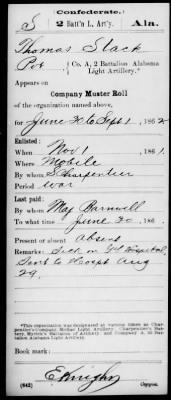 Confederate.
S 2 Batt'n L. Art'y. Ala.
Thomas Slack
Pvt Co. A, 2 Battalion Alabama
Light Artillery.*
Appears on
Company Muster Roll
of the organization named above,
for June 30 to Sept 1, 1862
Enlisted:
When Nov 1, 1861.
Where Mobile
By whom S. Charpentier
Period war
Last paid:
By whom Maj Barnwell
To what time June 30, 186
Present or absent Absent
Remarks: Sick in Hospital,
Sent to Hospt Aug
29.
*This organization was designated at various times as Charpentier's Company Mobile Light Artillery; Charpentier's Battery, Myrick's Battalion of Artillery; and Company A, 2d Battalion Alabama Light Artillery.
Book mark:
(642) Copyist.